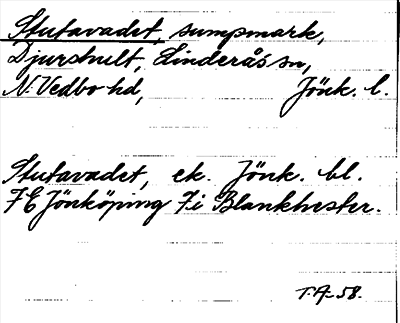 Stutavadet, sumpmark,
Djurshult, Linderås sn,
N. Vedbo hd, Jönk. l.
Stutavadet, ek. Jönk. bl.
7E Jönköping 7i Blankhester.
T.A-58.